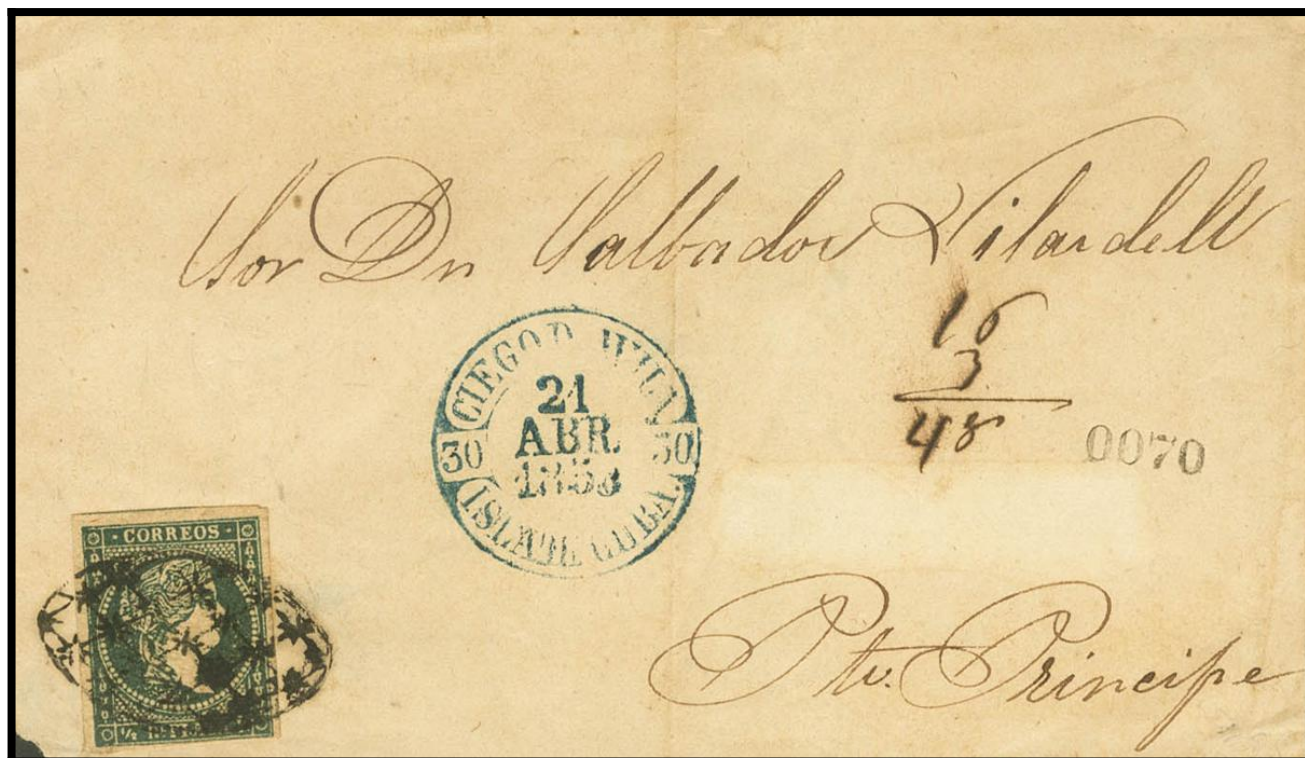 Sor Dn Salbador Vilardell
16
3
48
0070
CIEGO D
21
ABR.
30 30
ISLA DE CUBA.
· CORREOS ·
Pto. Principe